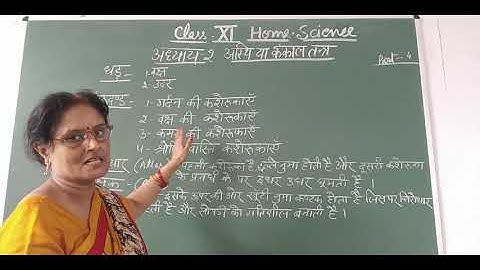 Class XI Home-Science
अध्याय-2 अस्थि या कंकाल तन्त्र
Part-4
धड़- 1-वक्ष
2-उदर
1- गर्दन की कशेरूकाएँ
2- वक्ष की कशेरूकाएँ
3- कमर की कशेरूकाएँ
4- श्रोणि कशेरूकाएँ
कशेरूका है छल्ले नुमा होती है और दूसरी कशेरूका
के प्रवर्ध के पर इधर उधर घूमती है
इसके ऊपर की ओर खूंटी नुमा होता है जिस पर
है और गतिशील बनाती है ।